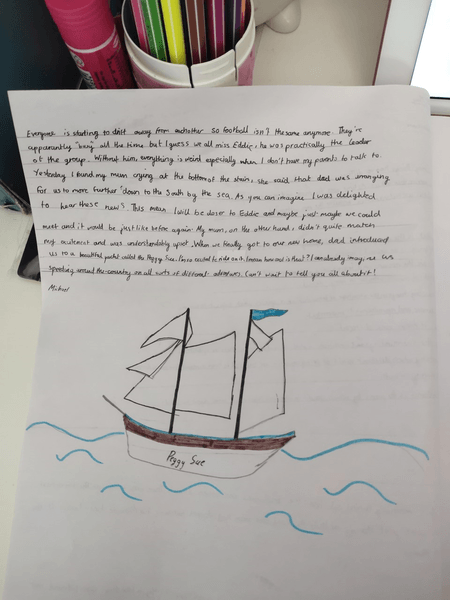 Everyone is starting to drift away from eachother so football isn't the same anymore. They're
apparantly "busy" all the time but I guess we all miss Eddie, he was practically the leader
of the group. Without him, everything is weird especially when I don't have my parents to talk to.
Yesterday I found my mum crying at the bottom of the stairs, she said that dad was arranging
for us to move further down to the South by the sea. As you can imagine I was delighted
to hear these news! This mean I will be closer to Eddie and maybe just maybe we could
meet and it would be just like before again. My mum, on the other hand, didn't quite match
my exitement and was understandably upset. When we finally got to our new home, dad introduced
us to a beautiful yacht called the Peggy Sue. I'm so excited to ride on it, I mean how cool is that? I can already imagine us
speeding around the country on all sorts of different adventures. Can't wait to tell you all about it!
Michael
Peggy Sue